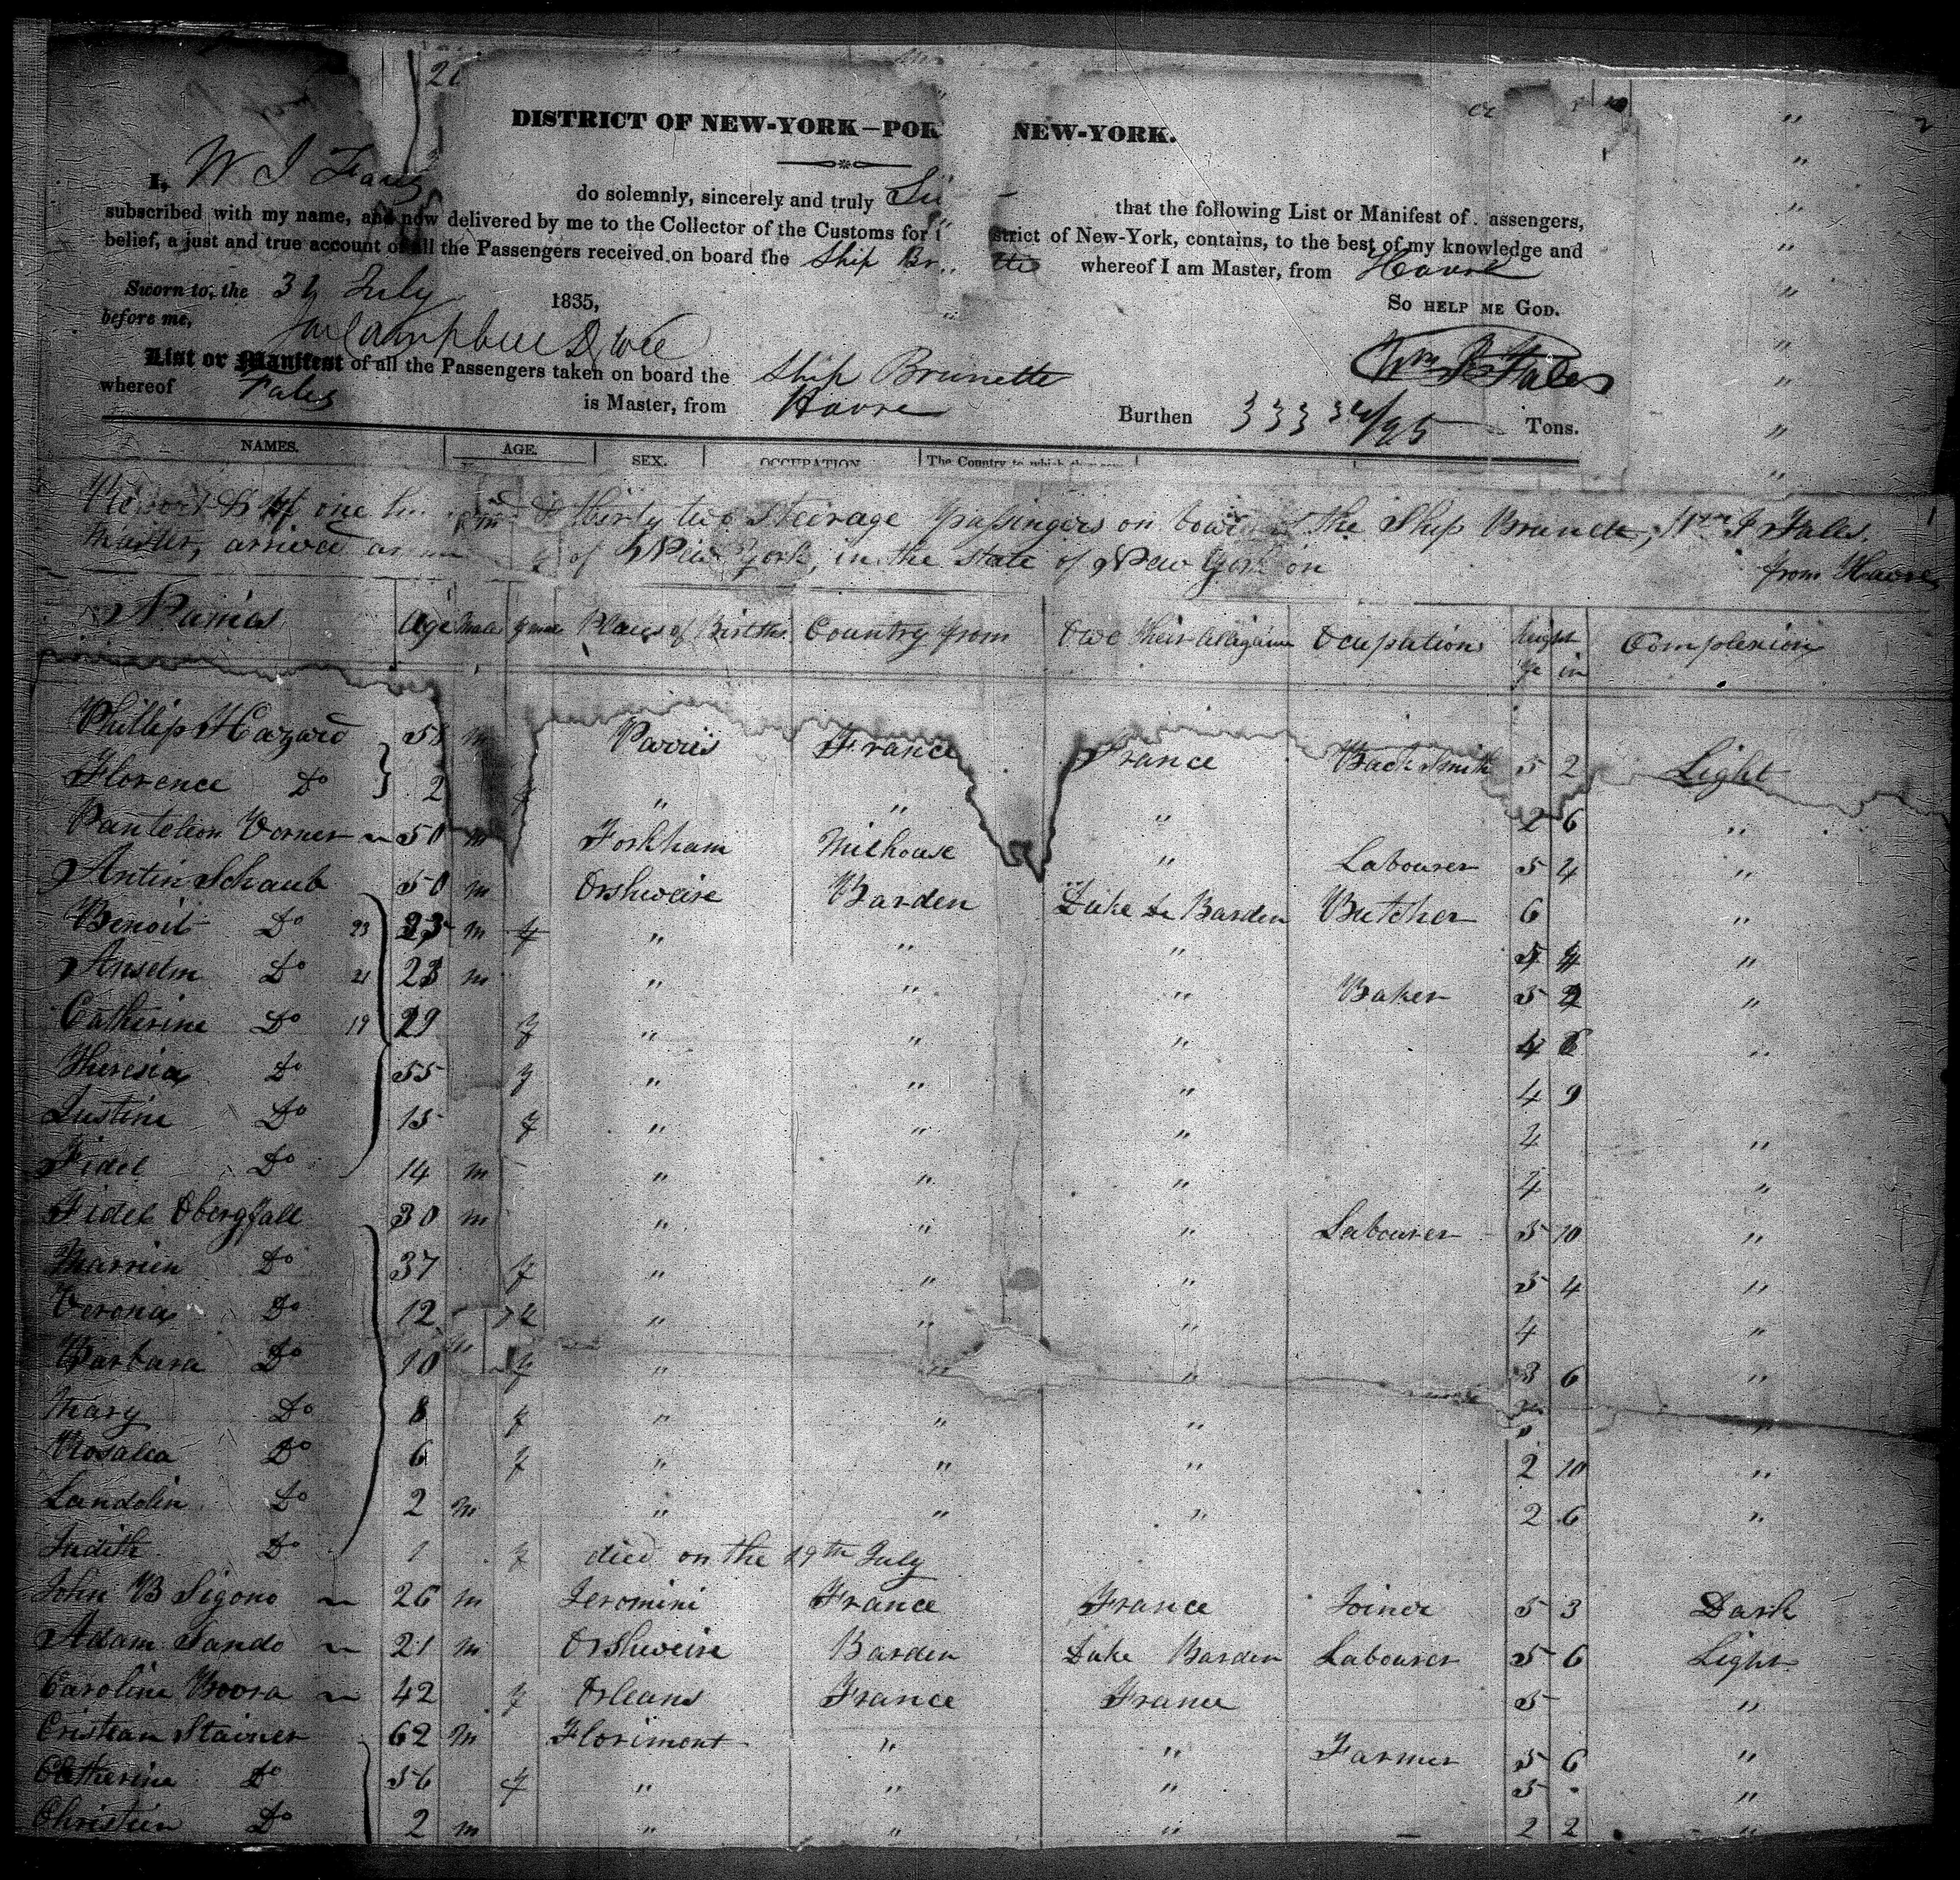 DISTRICT OF NEW-YORK—POR NEW-YORK.
I, W J do solemnly, sincerely and truly that the following List or Manifest of assengers,
subscribed with my name, and now delivered by me to the Collector of the Customs for strict of New-York, contains, to the best of my knowledge and
belief, a just and true account of all the Passengers received on board the Ship Br tte whereof I am Master, from Havre
Sworn to, the 31 July 1835, SO HELP ME GOD.
before me,
Wm J Fales
List or Manifest of all the Passengers taken on board the Ship Brunette
whereof Fales is Master, from Havre Burthen 333 34/95 Tons.
NAMES. AGE. SEX. OCCUPATION The Country to which
of one thirty two Steirage passingers on board the Ship Brunette, Wm J Fales
Master, arrived of New York, in the State of New York on from Havre
Names Age Male Places of Births Country from Owe their Ocupation hight Complexion
fe in
Phillip Hazard 58 m Parris France France Back Smith 5 2 Light
Florence Do 2 f " " " 2 6 "
Pantelion Vorner 50 m Forkham Milhouse " Labourer 5 4 "
Antin Schaub 50 m Orshweire Barden Duke de Barden Butcher 6 "
Benoit Do 23 m f " " " "
Anselm Do 21 m " " " Baker 5 "
Catherine Do 19 f " " " "
Theresia Do 55 f " " " 4 9
Justine Do 15 f " " " 4 "
Fidel Do 14 m " " " 4 "
Fidel Obergfall 30 m " " " Labourer 5 10 "
Marrien Do 37 f " " " 5 4 "
Verona Do 12 " " " 4 "
Barbara Do 10 f " " " 3 6 "
Mary Do 8 f " " " "
Rosalia Do 6 f " " " 2 10 "
Landolin Do 2 m " " " 2 6 "
Judith Do 1 f died on the 19th July
John B Sigono 26 m Jeromini France France Joiner 5 3 Dark
Adam Sando 21 m Orshweire Barden Duke Barden Labourer 5 6 Light
Caroline Boora 42 f Orleans France France 5 "
Cristean Stainer 62 m Floriment " " Farmer 5 6 "
Catherine Do 56 f " " " 5 "
Christien Do 2 m " " " 2 2 "